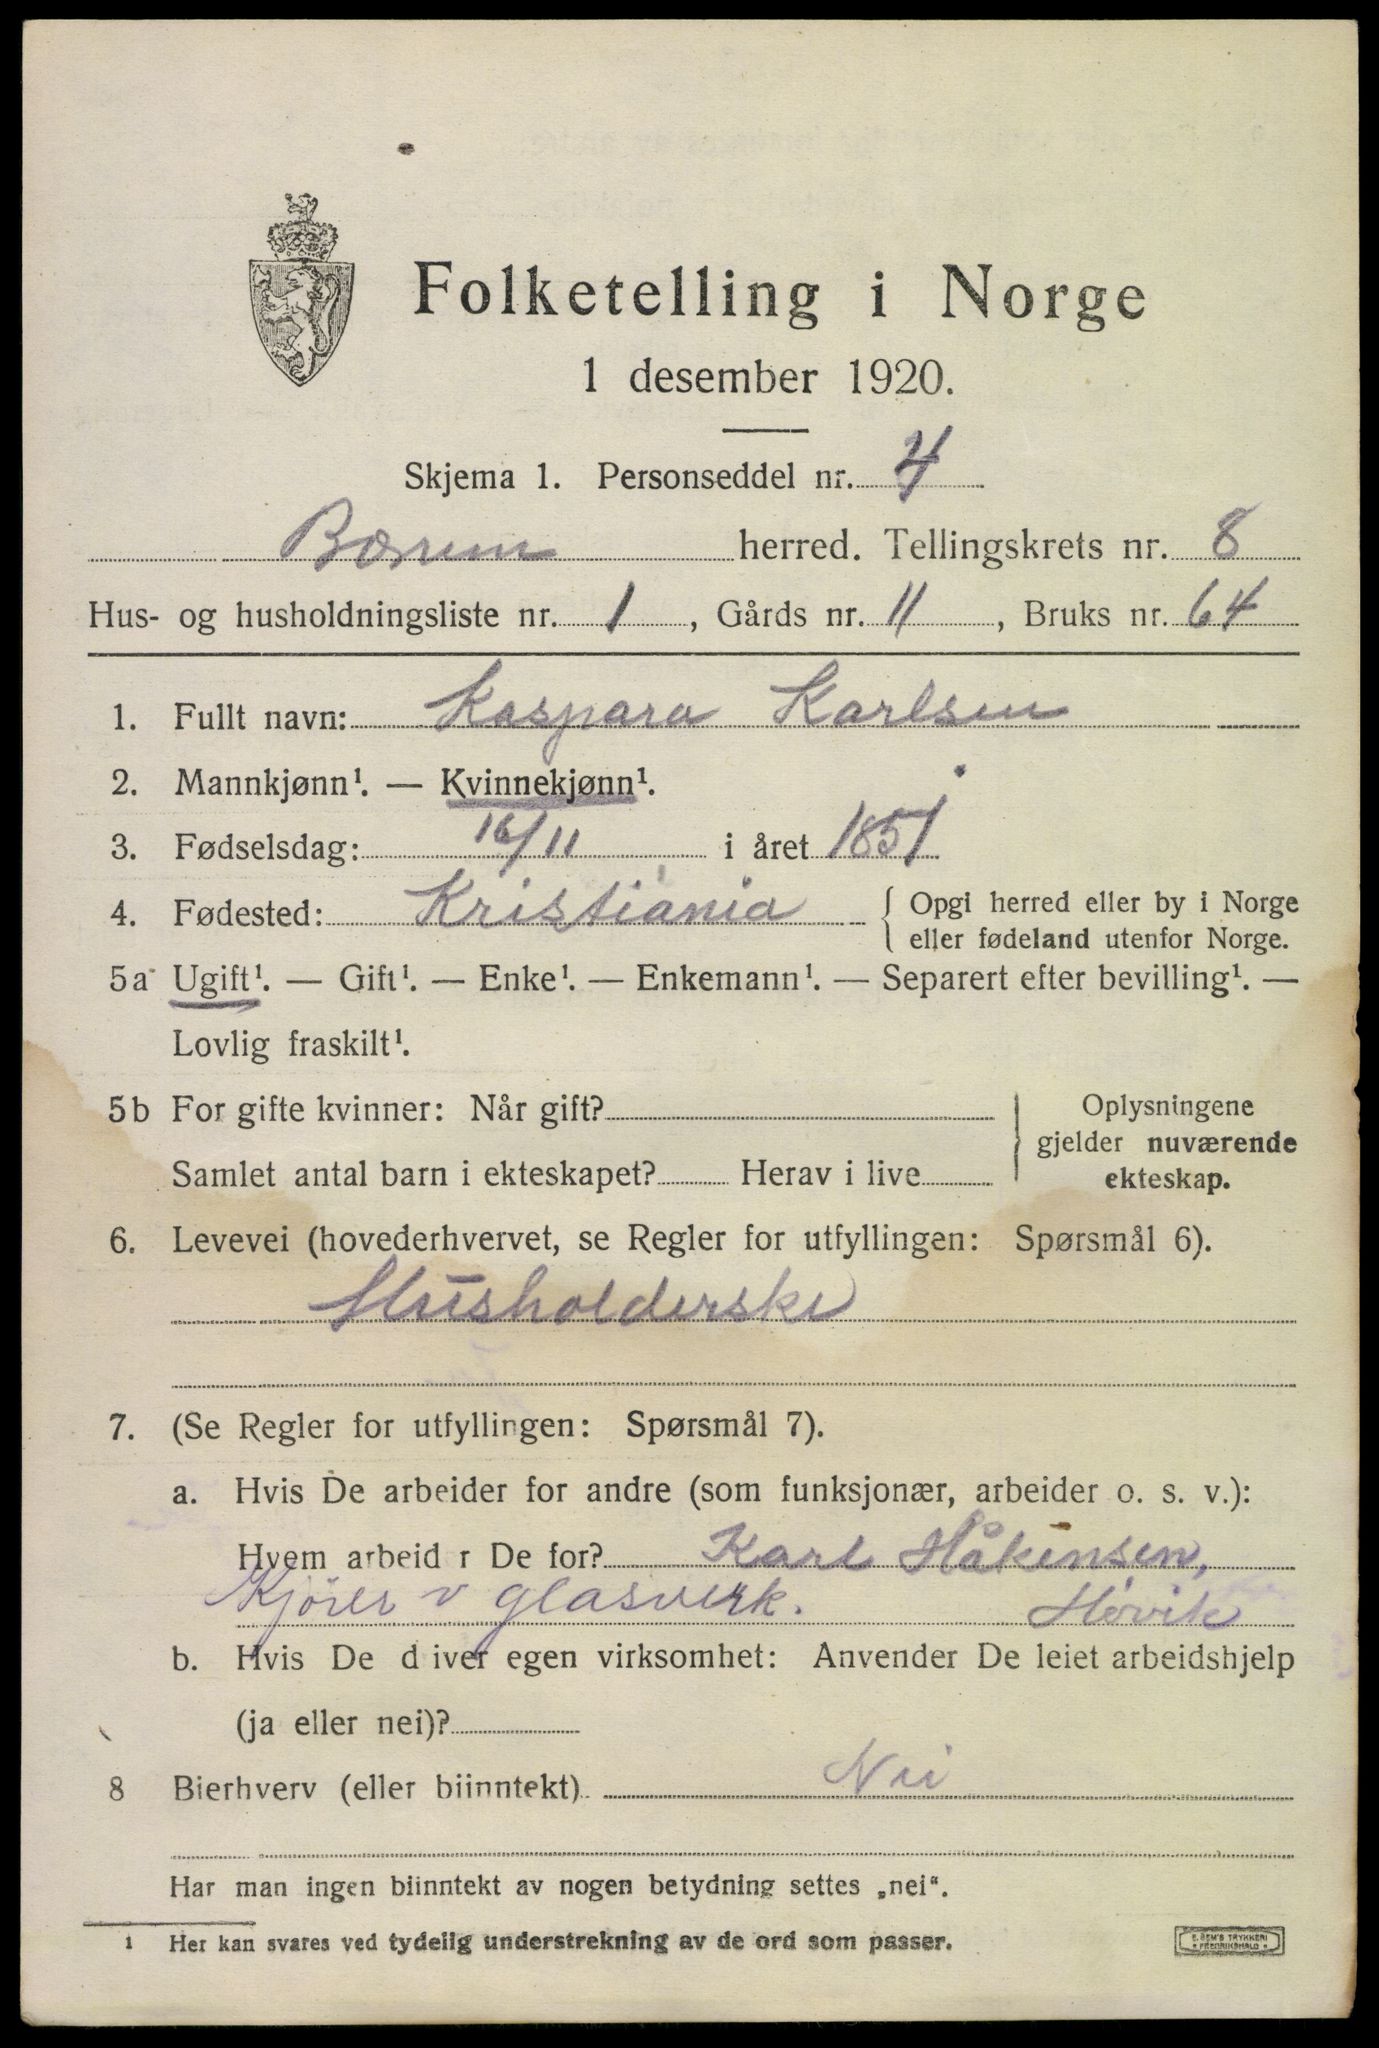 Folketelling i Norge
1 desember 1920.
Skjema 1. Personseddel nr. 4
Bærum herred. Tellingskrets nr. 8
Hus- og husholdningsliste nr. 1, Gårds nr. 11, Bruks nr. 64
1. Fullt navn: Kaspara Karlsen
2. Mannkjønn¹. — Kvinnekjønn¹.
3. Fødselsdag: 16/11 i året 1851
4. Fødested: Kristiania { Opgi herred eller by i Norge
eller fødeland utenfor Norge.
5a Ugift¹. — Gift¹. — Enke¹. — Enkemann¹. — Separert efter bevilling¹. —
Lovlig fraskilt¹.
5b For gifte kvinner: Når gift? } Oplysningene
gjelder nuværende
Samlet antal barn i ekteskapet? Herav i live ekteskap.
6. Levevei (hovederhvervet, se Regler for utfyllingen: Spørsmål 6).
Husholderske
7. (Se Regler for utfyllingen: Spørsmål 7).
a. Hvis De arbeider for andre (som funksjonær, arbeider o. s. v.):
Hvem arbeid r De for? Karl Håkensen,
Kjörer v glasverk. Hövik
b. Hvis De d iver egen virksomhet: Anvender De leiet arbeidshjelp
(ja eller nei)?
8 Bierhverv (eller biinntekt) Nei
Har man ingen biinntekt av nogen betydning settes „nei“.
¹ Her kan svares ved tydelig understrekning av de ord som passer.
E. SEM'S TRYKKERI
• FREDRIKSHALD •